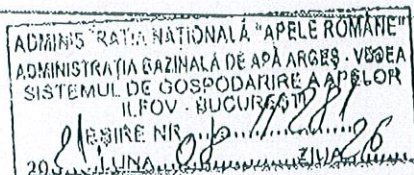 ADMINISTRAȚIA NAȚIONALĂ "APELE ROMÂNE"
ADMINISTRAȚIA BAZINALĂ DE APĂ ARGEȘ - VEDEA
SISTEMUL DE GOSPODARIRE A APELOR
ILFOV - BUCUREȘTI
IEȘIRE NR. 11281
2021 LUNA 08 ZIUA 26